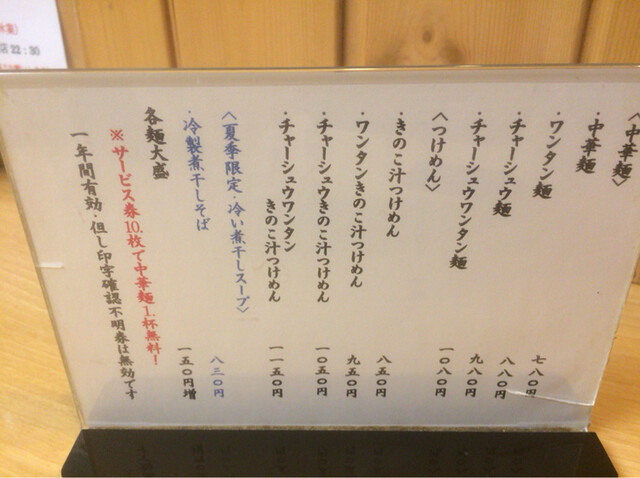 〈中華麺〉
・中華麺 七八〇円
・ワンタン麺 八八〇円
・チャーシュウ麺 九八〇円
・チャーシュウワンタン麺 一〇八〇円
〈つけめん〉
・きのこ汁つけめん 八五〇円
・ワンタンきのこ汁つけめん 九五〇円
・チャーシュウきのこ汁つけめん 一〇五〇円
・チャーシュウワンタン
きのこ汁つけめん 一一五〇円
〈夏季限定・冷い煮干しスープ〉
・冷製煮干しそば 八三〇円
各麺大盛 一五〇円増
※サービス券10.枚で中華麺1.杯無料！
一年間有効・但し印字確認不明券は無効です
店22:30